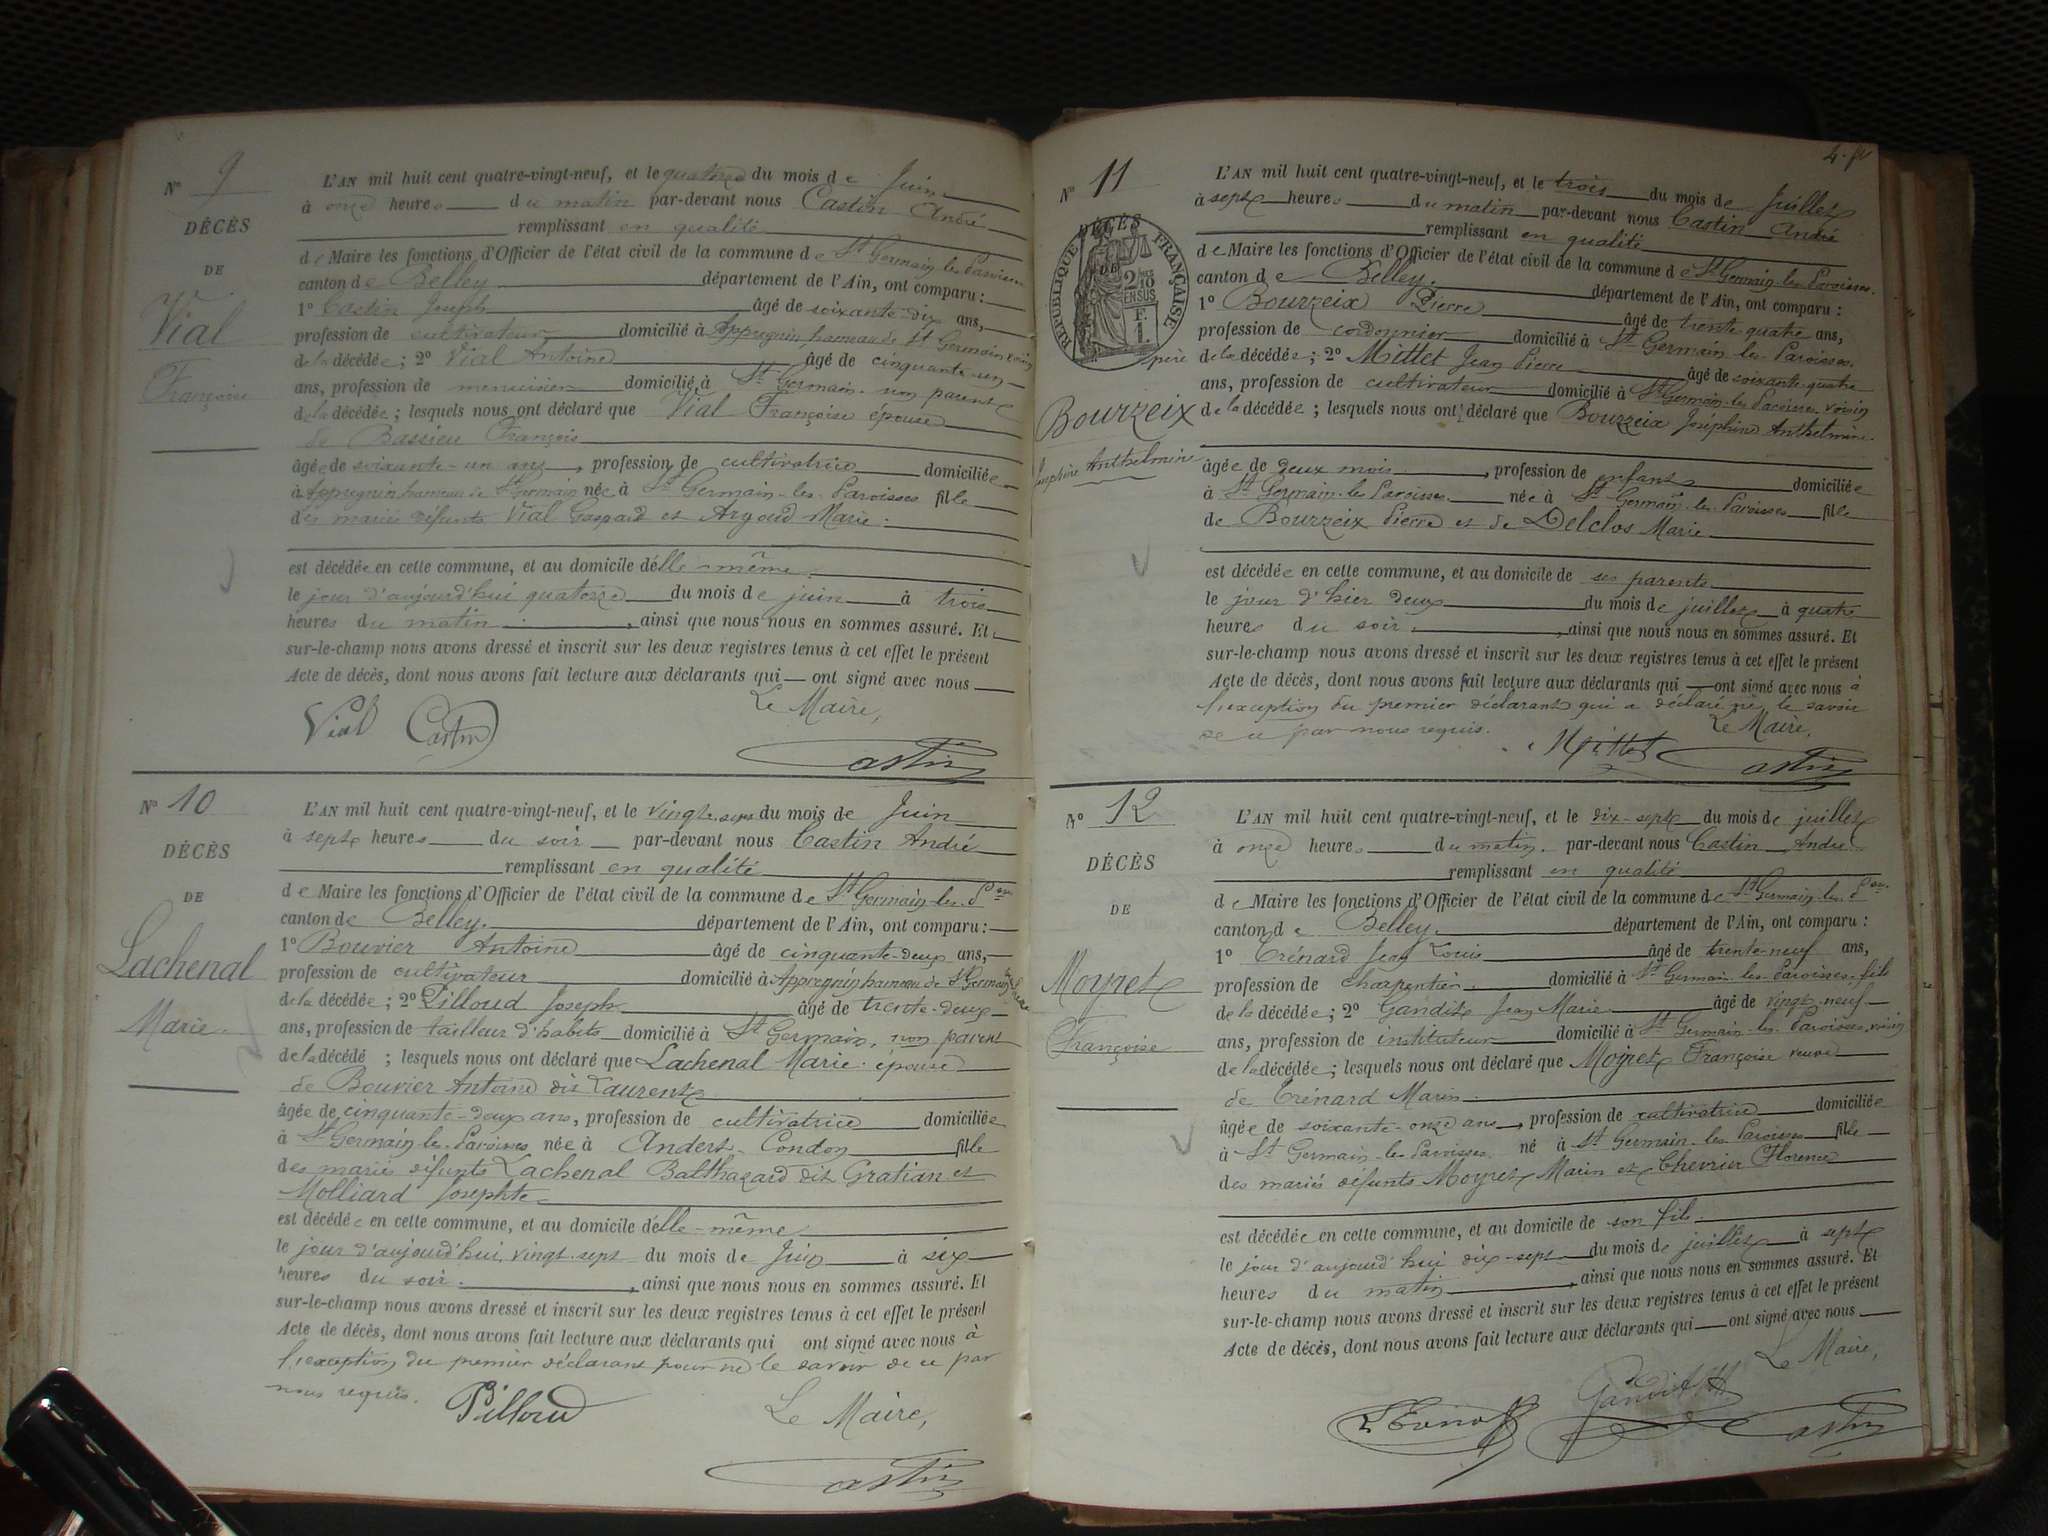 N° 9
DÉCÈS
DE
Vial
Françoise
L'AN mil huit cent quatre-vingt-neuf, et le quatorze du mois de Juin
à onze heures du matin par-devant nous Castin André
remplissant en qualité
de Maire les fonctions d'Officier de l'état civil de la commune de St Germain-les-Paroisses
canton de Belley département de l'Ain, ont comparu :
1° Castin Joseph âgé de soixante-dix ans,
profession de cultivateur domicilié à Appregnin hameau de St Germain voisin
de la décédée ; 2° Vial Antoine âgé de cinquante-un
ans, profession de menuisier domicilié à St Germain. non parent
de la décédée ; lesquels nous ont déclaré que Vial Françoise épouse
de Bassieu François
âgée de soixante-un ans, profession de cultivatrice domiciliée
à Appregnin hameau de St Germain née à St Germain-les-Paroisses fille
des mariés défunts Vial Gaspard et Argoud Marie.
est décédée en cette commune, et au domicile d'elle-même.
le jour d'aujourd'hui quatorze du mois de juin à trois
heures du matin, ainsi que nous nous en sommes assuré. Et
sur-le-champ nous avons dressé et inscrit sur les deux registres tenus à cet effet le présent
Acte de décès, dont nous avons fait lecture aux déclarants qui ont signé avec nous
Le Maire,
Vial Castin
Castin
N° 10
DÉCÈS
DE
Lachenal
Marie
L'AN mil huit cent quatre-vingt-neuf, et le vingt-sept du mois de Juin
à sept heures du soir par-devant nous Castin André
remplissant en qualité
de Maire les fonctions d'Officier de l'état civil de la commune de St Germain-les-P
canton de Belley. département de l'Ain, ont comparu :
1° Bouvier Antoine âgé de cinquante-deux ans,
profession de cultivateur domicilié à Appregnin hameau de St Germain
de la décédée ; 2° Pilloud Joseph âgé de trente-deux
ans, profession de tailleur d'habits domicilié à St Germain, non parent
de la décédé ; lesquels nous ont déclaré que Lachenal Marie épouse
de Bouvier Antoine dit Laurent
âgée de cinquante-deux ans, profession de cultivatrice domiciliée
à St Germain-les-Paroisses née à Andert-Condon fille
des mariés défunts Lachenal Balthazard dit Gratian et
Molliard Josephte
est décédée en cette commune, et au domicile d'elle-même
le jour d'aujourd'hui, vingt-sept du mois de Juin à six
heures du soir, ainsi que nous nous en sommes assuré. Et
sur-le-champ nous avons dressé et inscrit sur les deux registres tenus à cet effet le présent
Acte de décès, dont nous avons fait lecture aux déclarants qui ont signé avec nous à
l'exception du premier déclarant pour ne le savoir de ce par
nous requis.
Pilloud Le Maire,
Castin
N° 11
DÉCÈS
DE
RÉPUBLIQUE FRANÇAISE
2/10 EN SUS
F.
1.
Bourzeix
Joséphine Anthelmine
L'AN mil huit cent quatre-vingt-neuf, et le trois du mois de Juillet
à sept heures du matin par-devant nous Castin André
remplissant en qualité
de Maire les fonctions d'Officier de l'état civil de la commune de St Germain-les-Paroisses.
canton de Belley. département de l'Ain, ont comparu :
1° Bourzeix Pierre âgé de trente quatre ans,
profession de cordonnier domicilié à St Germain-les-Paroisses.
père de la décédée ; 2° Mittet Jean Pierre âgé de soixante-quatre
ans, profession de cultivateur domicilié à St Germain-les-Paroisses voisin
de la décédée ; lesquels nous ont déclaré que Bourzeix Joséphine Anthelmine.
âgée de deux mois, profession de enfant domiciliée
à St Germain-les-Paroisses. née à St Germain-les-Paroisses fille
de Bourzeix Pierre et de Delclos Marie.
est décédée en cette commune, et au domicile de ses parents
le jour d'hier deux du mois de juillet à quatre
heures du soir, ainsi que nous nous en sommes assuré. Et
sur-le-champ nous avons dressé et inscrit sur les deux registres tenus à cet effet le présent
Acte de décès, dont nous avons fait lecture aux déclarants qui ont signé avec nous à
l'exception du premier déclarant qui a déclaré ne le savoir
de ce par nous requis. Le Maire,
Mittet Castin
N° 12
DÉCÈS
DE
Moyret
Françoise
L'AN mil huit cent quatre-vingt-neuf, et le dix-sept du mois de juillet
à onze heures du matin. par-devant nous Castin André
remplissant en qualité
de Maire les fonctions d'Officier de l'état civil de la commune de St Germain-les-P
canton de Belley. département de l'Ain, ont comparu :
1° Trénard Jean Louis âgé de trente-neuf ans,
profession de charpentier domicilié à St Germain-les-Paroisses-fils
de la décédée ; 2° Gandit Jean Marie âgé de vingt-neuf
ans, profession de instituteur domicilié à St Germain-les-Paroisses, voisin
de la décédée ; lesquels nous ont déclaré que Moyret Françoise veuve
de Trénard Marin
âgée de soixante-onze ans, profession de cultivatrice domiciliée
à St Germain-les-Paroisses. né à St Germain-les-Paroisses fille
des mariés défunts Moyret Marin et Chevrier Florence
est décédée en cette commune, et au domicile de son fils
le jour d'aujourd'hui dix-sept du mois de juillet à sept
heures du matin, ainsi que nous nous en sommes assuré. Et
sur-le-champ nous avons dressé et inscrit sur les deux registres tenus à cet effet le présent
Acte de décès, dont nous avons fait lecture aux déclarants qui ont signé avec nous
Le Maire,
Gandit
Castin